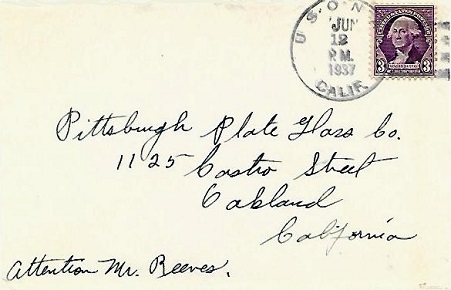 U·S·O·N
JUN
12
P.M.
1937
CALIF.
3 3
Pittsburgh Plate Glass Co.
1125 Castro Street
Oakland
California
Attention Mr. Reeves.